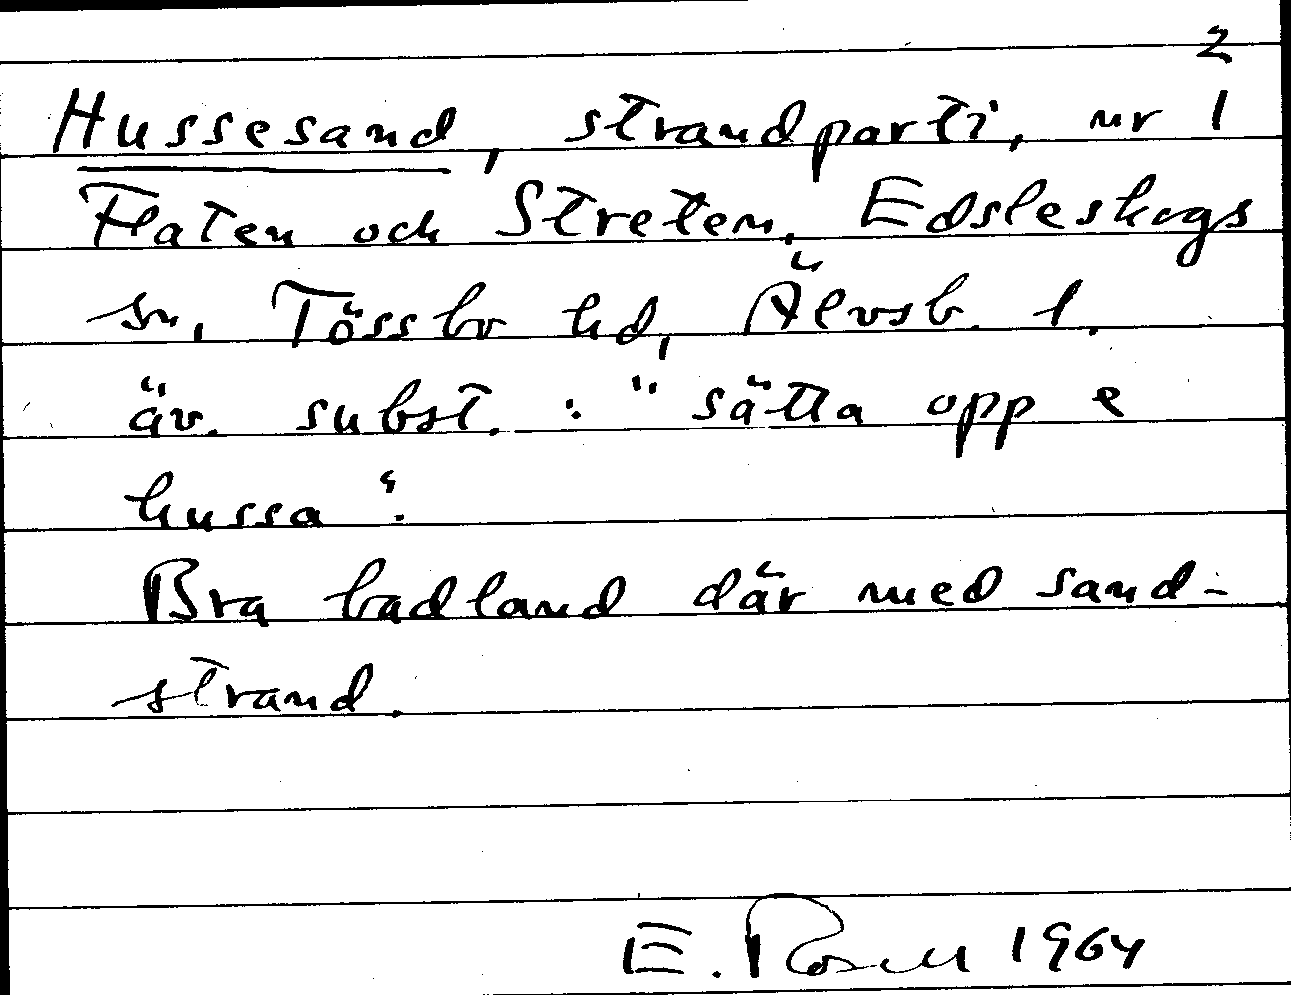 2
Hussesand, strandparti, nr 1
Flaten och Streten, Edsleskogs
sn, Tössbo hd, Älvsb. l.
äv. subst.: "sätta opp e
hussa".
Bra badland där med sand-
strand.
E. Rosell 1964